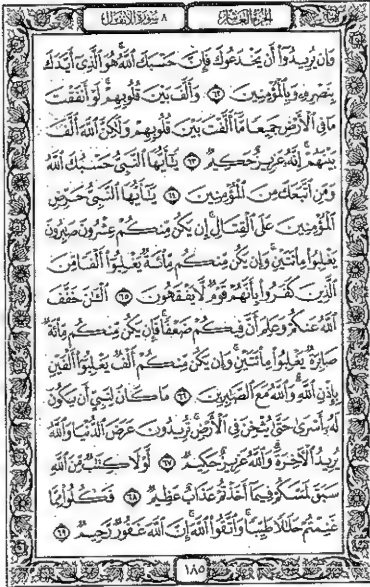 الجزء العاشر ٨ سورة الأنفال
وَإِن يُرِيدُوٓا۟ أَن يَخْدَعُوكَ فَإِنَّ حَسْبَكَ ٱللَّهُ ۚ هُوَ ٱلَّذِىٓ أَيَّدَكَ
بِنَصْرِهِۦ وَبِٱلْمُؤْمِنِينَ ٦٢ وَأَلَّفَ بَيْنَ قُلُوبِهِمْ ۚ لَوْ أَنفَقْتَ
مَا فِى ٱلْأَرْضِ جَمِيعًا مَّآ أَلَّفْتَ بَيْنَ قُلُوبِهِمْ وَلَـٰكِنَّ ٱللَّهَ أَلَّفَ
بَيْنَهُمْ ۚ إِنَّهُۥ عَزِيزٌ حَكِيمٌ ٦٣ يَـٰٓأَيُّهَا ٱلنَّبِىُّ حَسْبُكَ ٱللَّهُ
وَمَنِ ٱتَّبَعَكَ مِنَ ٱلْمُؤْمِنِينَ ٦٤ يَـٰٓأَيُّهَا ٱلنَّبِىُّ حَرِّضِ
ٱلْمُؤْمِنِينَ عَلَى ٱلْقِتَالِ ۚ إِن يَكُن مِّنكُمْ عِشْرُونَ صَـٰبِرُونَ
يَغْلِبُوا۟ مِا۟ئَتَيْنِ ۚ وَإِن يَكُن مِّنكُم مِّا۟ئَةٌ يَغْلِبُوٓا۟ أَلْفًا مِّنَ
ٱلَّذِينَ كَفَرُوا۟ بِأَنَّهُمْ قَوْمٌ لَّا يَفْقَهُونَ ٦٥ ٱلْـَٔـٰنَ خَفَّفَ
ٱللَّهُ عَنكُمْ وَعَلِمَ أَنَّ فِيكُمْ ضَعْفًا ۚ فَإِن يَكُن مِّنكُم مِّا۟ئَةٌ
صَابِرَةٌ يَغْلِبُوا۟ مِا۟ئَتَيْنِ ۚ وَإِن يَكُن مِّنكُمْ أَلْفٌ يَغْلِبُوٓا۟ أَلْفَيْنِ
بِإِذْنِ ٱللَّهِ ۗ وَٱللَّهُ مَعَ ٱلصَّـٰبِرِينَ ٦٦ مَا كَانَ لِنَبِىٍّ أَن يَكُونَ
لَهُۥٓ أَسْرَىٰ حَتَّىٰ يُثْخِنَ فِى ٱلْأَرْضِ ۚ تُرِيدُونَ عَرَضَ ٱلدُّنْيَا وَٱللَّهُ
يُرِيدُ ٱلْـَٔاخِرَةَ ۗ وَٱللَّهُ عَزِيزٌ حَكِيمٌ ٦٧ لَّوْلَا كِتَـٰبٌ مِّنَ ٱللَّهِ
سَبَقَ لَمَسَّكُمْ فِيمَآ أَخَذْتُمْ عَذَابٌ عَظِيمٌ ٦٨ فَكُلُوا۟ مِمَّا
غَنِمْتُمْ حَلَـٰلًا طَيِّبًا ۚ وَٱتَّقُوا۟ ٱللَّهَ ۚ إِنَّ ٱللَّهَ غَفُورٌ رَّحِيمٌ ٦٩
١٨٥